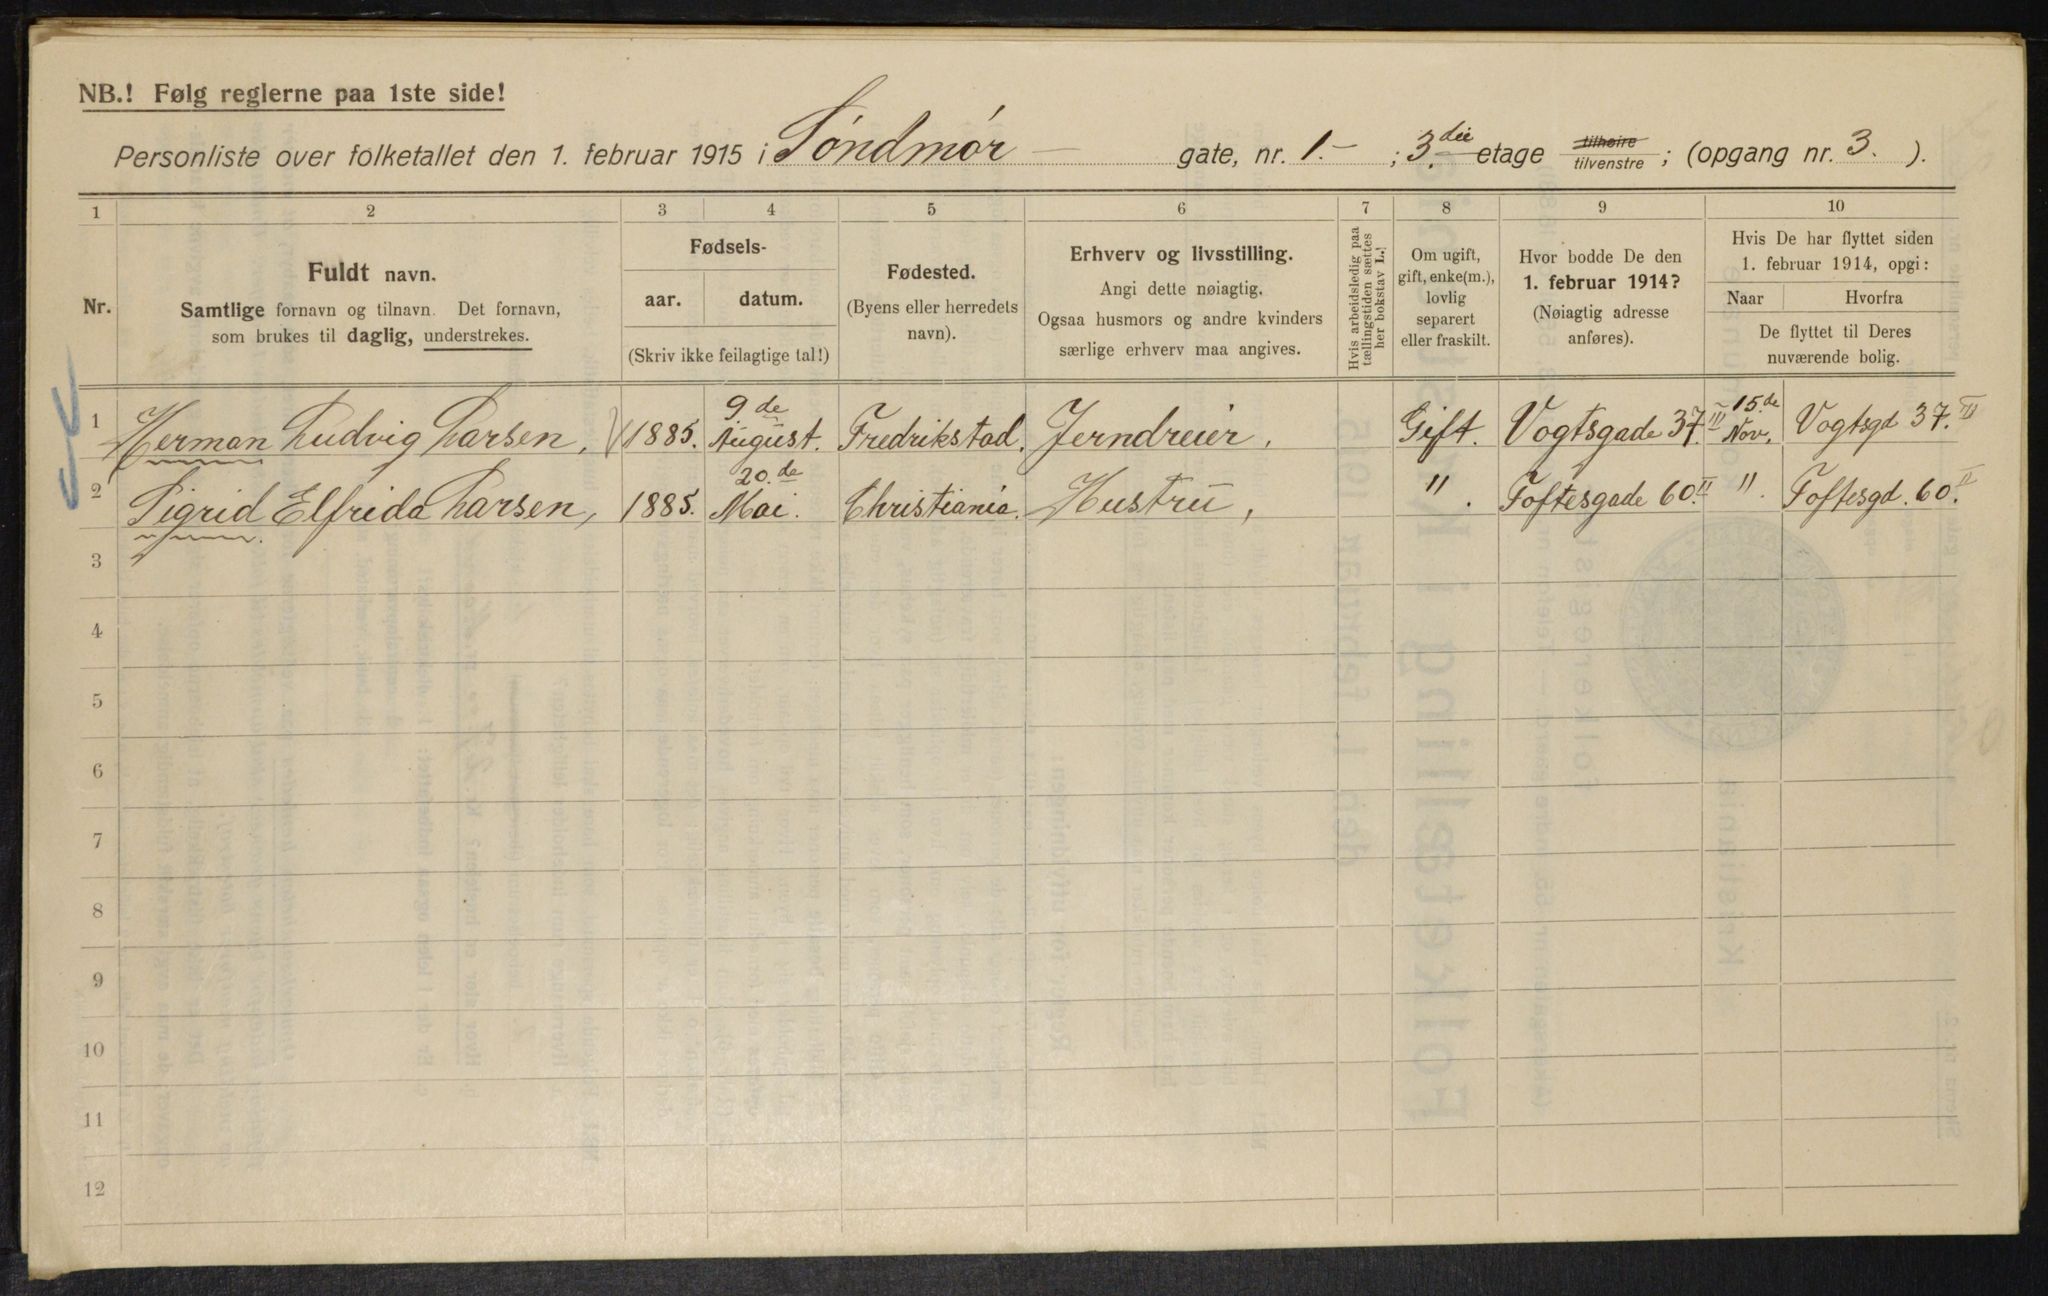 NB.! Følg reglerne paa 1ste side!
Personliste over folketallet den 1. februar 1915 i Søndmør — gate, nr. 1.- ; 3.die etage tilhøire tilvenstre ; (opgang nr. 3. ).
1 2 3 4 5 6 7 8 9 10
Nr.
Fuldt navn.
Samtlige fornavn og tilnavn. Det fornavn,
som brukes til daglig, understrekes.
Fødsels-
aar. datum.
(Skriv ikke feilagtige tal!)
Fødested.
(Byens eller herredets
navn).
Erhverv og livsstilling.
Angi dette nøiagtig.
Ogsaa husmors og andre kvinders
særlige erhverv maa angives.
Hvis arbeidsledig paa
tællingstiden sættes
her bokstav L.!
Om ugift,
gift, enke(m.),
lovlig
separert
eller fraskilt.
Hvor bodde De den
1. februar 1914?
(Nøiagtig adresse
anføres).
Hvis De har flyttet siden
1. februar 1914, opgi:
Naar Hvorfra
De flyttet til Deres
nuværende bolig.
1 Herman Ludvig Larsen, 1885. 9de August. Fredrikstad. Jerndreier, Gift. Vogtsgade 37.III 15.de Nov. Vogtsgd 37.III
2 Sigrid Elfrida Larsen, 1885. 20.de Mai. Christiania. Hustru, " . Toftesgade 60II " . Toftesgd. 60.II
3
4
5
6
7
8
9
10
11
12